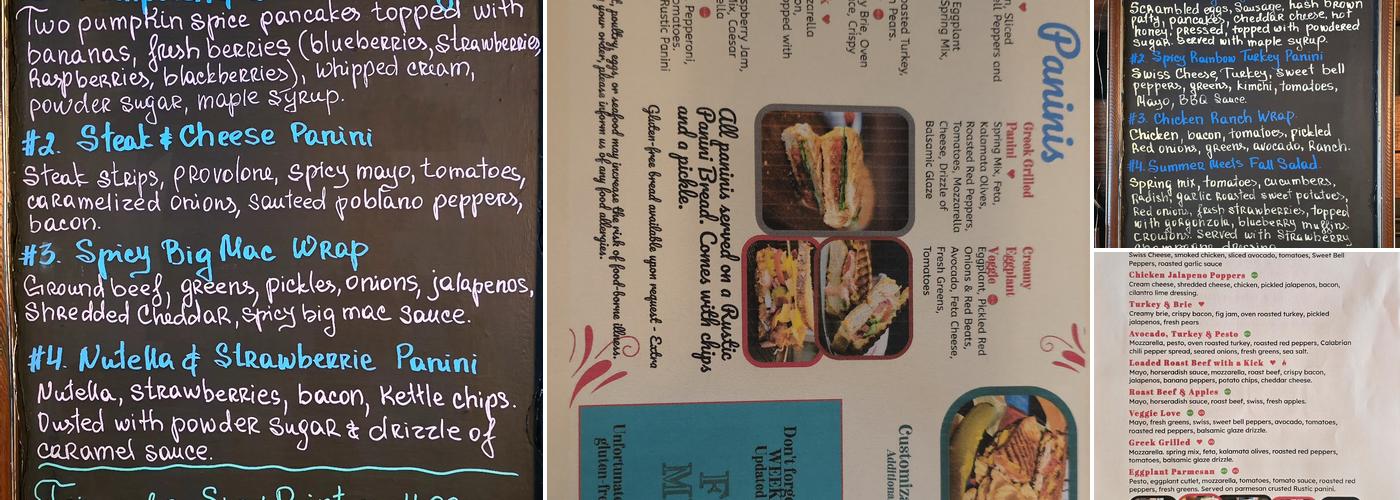 Two pumpkin spice pancakes topped with
bananas, fresh berries (blueberries, Strawberries,
Raspberries, blackberries), whipped cream,
powder sugar, maple syrup.
#2. Steak & Cheese Panini
Steak strips, provolone, spicy mayo, tomatoes,
caramelized onions, sauteed poblano peppers,
bacon.
#3. Spicy Big Mac Wrap
Ground beef, greens, pickles, onions, jalapenos,
Shredded Cheddar, spicy big mac sauce.
#4. Nutella & Strawberrie Panini
Nutella, strawberries, bacon, Kettle chips.
Dusted with powder sugar & drizzle of
caramel sauce.
Paninis
Greek Grilled
Panini
Spring Mix, Feta,
Kalamata Olives,
Roasted Red Peppers,
Tomatoes, Mozzarella
Cheese, Drizzle of
Balsamic Glaze
Creamy
Eggplant
Veggie
Eggplant, Pickled Red
Onions & Red Beats,
Avocado, Feta Cheese,
Fresh Greens,
Tomatoes
n, Sliced
ell Peppers and
Eggplant
Spring Mix,
oasted Turkey,
h Pears.
y Brie, Oven
uce, Crispy
zzarella
pped with
spberry Jam,
Mix, Caesar
ella
Pepperoni,
omatoes,
Rustic Panini
All paninis served on a Rustic
Panini Bread. Comes with chips
and a pickle.
Gluten-free bread available upon request - Extra
, poultry, eggs, or seafood may increase the risk of food-borne illness.
your order, please inform us of any food allergies.
Customiz
Additiona
Don't forge
WEEK
Updated
F
M
Unfortunat
gluten-fre
Scrambled eggs, Sausage, hash brown
patty, pancakes, cheddar cheese, hot
honey. pressed, topped with powdered
sugar. Served with maple syrup.
#2. Spicy Rainbow Turkey Panini
Swiss Cheese, Turkey, sweet bell
peppers, greens, kimchi, tomatoes,
Mayo, BBQ Sauce.
#3. Chicken Ranch Wrap.
Chicken, bacon, tomatoes, pickled
Red onions, greens, avocado, Ranch.
#4. Summer Meets Fall Salad.
Spring mix, tomatoes, cucumbers,
Radish, garlic roasted sweet potatoes,
Red onions, fresh strawberries, topped
with gorgonzola, blueberry muffins
croutons. Served with strawberry
Swiss Cheese, smoked chicken, sliced avocado, tomatoes, Sweet Bell
Peppers, roasted garlic sauce
Chicken Jalapeno Poppers
Cream cheese, shredded cheese, chicken, pickled jalapenos, bacon,
cilantro lime dressing.
Turkey & Brie
Creamy brie, bacon, fig jam, oven roasted turkey, pickled
jalapenos, fresh pears
Avocado, Turkey & Pesto
Mozzarella, pesto, oven roasted turkey, roasted red peppers, Calabrian
chili pepper spread, seared onions, fresh greens, sea salt.
Loaded Roast Beef with a Kick
Mayo, horseradish sauce, mozzarella, roast beef, crispy bacon,
jalapenos, banana peppers, potato chips, cheddar cheese.
Roast Beef & Apples
Mayo, horseradish sauce, roast beef, swiss, fresh apples.
Veggie Love
Mayo, fresh greens, swiss, sweet bell peppers, avocado, tomatoes,
roasted red peppers, balsamic glaze drizzle.
Greek Grilled
Mozzarella, spring mix, feta, kalamata olives, roasted red peppers,
tomatoes, balsamic glaze drizzle.
Eggplant Parmesan
Pesto, eggplant cutlet, mozzarella, tomatoes, tomato sauce, roasted red
peppers, fresh greens. Served on parmesan crusted Rustic panini.